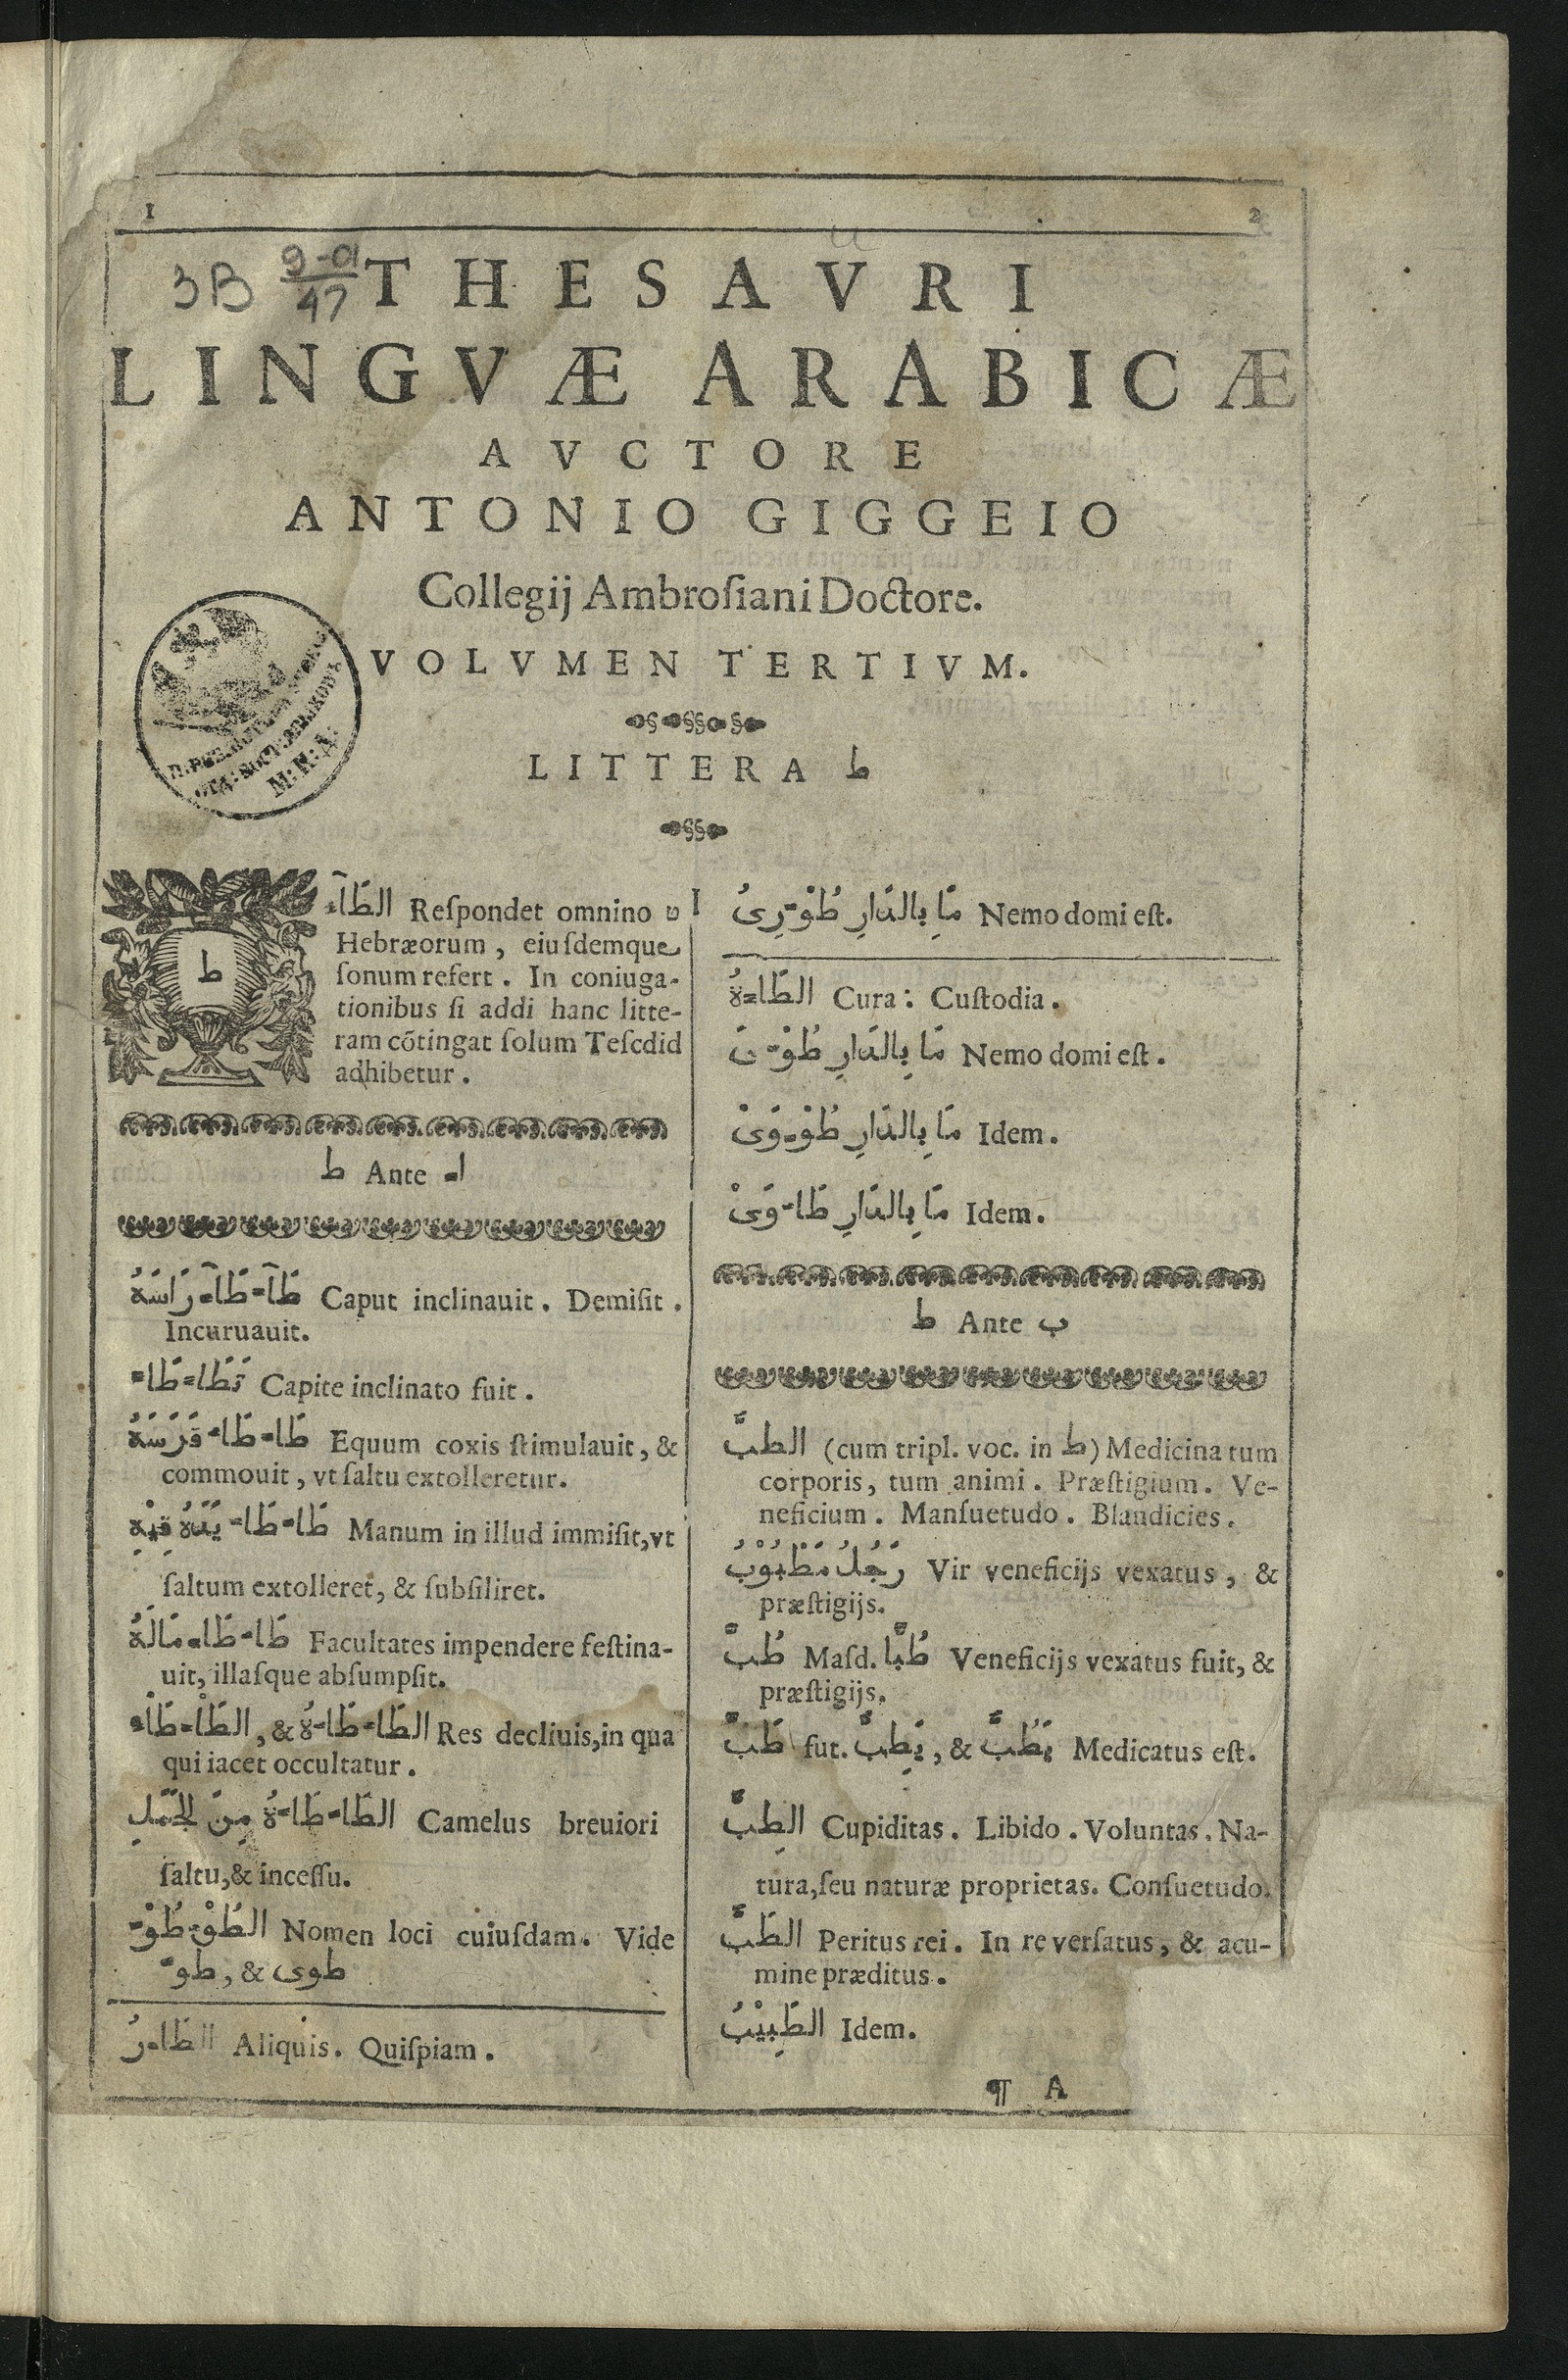 1
2
3B 9-01
47
THESAVRI
LINGVÆ ARABICÆ
AVCTORE
ANTONIO GIGGEIO
Collegij Ambroſiani Doctore.
VOLVMEN TERTIVM.
LITTERA ط
ط
الطَّآء Reſpondet omnino ט
Hebræorum, eiuſdemque
ſonum refert. In coniuga-
tionibus ſi addi hanc litte-
ram cõtingat ſolum Teſcdid
adhibetur.
ط Ante اء
طَآءطَآء رَاسَهُ Caput inclinauit. Demiſit.
Incuruauit.
تَطَاءطَاء Capite inclinato fuit.
طَاءطَاء فَرَسَهُ Equum coxis ſtimulauit, &
commouit, vt ſaltu extolleretur.
طَاءطَاء يَدَهُ فِيْهِ Manum in illud immiſit, vt
ſaltum extolleret, & ſubſiliret.
طَاءطَاء مَالَهُ Facultates impendere feſtina-
uit, illaſque abſumpſit.
الطَّاءطَاء, & الطَّاءطَاءةُ Res decliuis, in qua
qui iacet occultatur.
الطَّاءطَاءةُ مِنَ الجَمَلِ Camelus breuiori
ſaltu, & inceſſu.
الطُوْءطُوْء Nomen loci cuiuſdam. Vide
طوء, & طوى
الطَاءرُ Aliquis. Quiſpiam.
I
مَا بِالدَّارِ طُوْءرِىُ Nemo domi eſt.
الطَّاءةُ Cura: Cuſtodia.
مَا بِالدَّارِ طُوْءىَ Nemo domi eſt.
مَا بِالدَّارِ طُوْءوَىْ Idem.
مَا بِالدَّارِ طَاءوَىْ Idem.
ط Ante ب
الطبَّ (cum tripl. voc. in ط) Medicina tum
corporis, tum animi. Præſtigium. Ve-
neficium. Manſuetudo. Blandicies.
رَجُلُ مَطْبُوْبُ Vir veneficijs vexatus, &
præſtigijs.
طُبَّ Maſd. طُبَّا Veneficijs vexatus fuit, &
præſtigijs.
طَبَّ fut. يَطِبَّ, & يَطُبَّ Medicatus eſt.
الطِبَّ Cupiditas. Libido. Voluntas. Na-
tura, ſeu naturæ proprietas. Conſuetudo.
الطَبَّ Peritus rei. In re verſatus, & acu-
mine præditus.
الطَبِيْبُ Idem.
¶ A